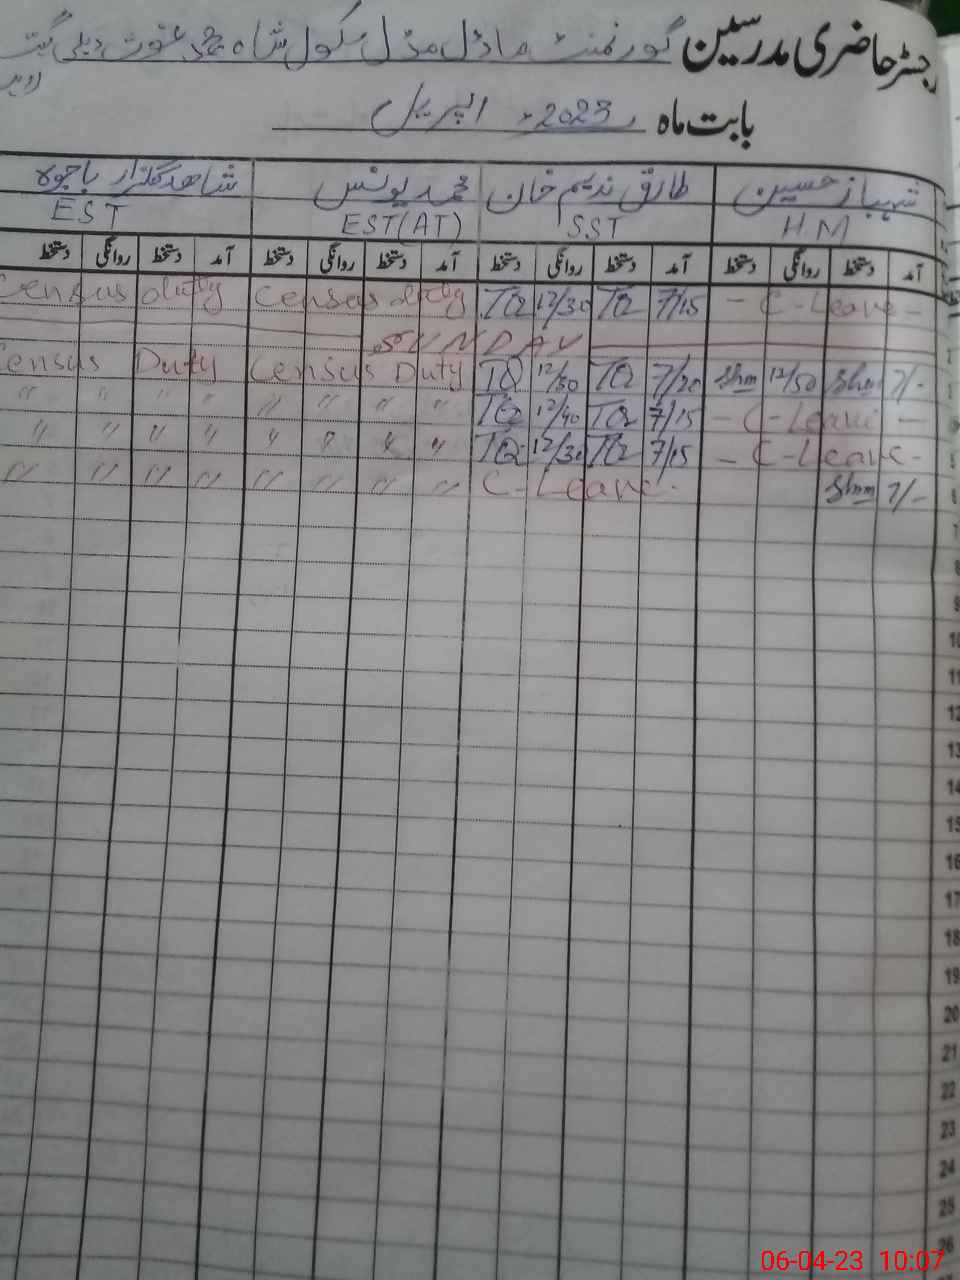 رجسٹر حاضری مدرسین گورنمنٹ ماڈل مڈل سکول شاہ محمد غوث دہلی گیٹ
لاہور
بابت ماہ اپریل 2023ء
شہباز حسین طارق ندیم خان محمد یونس شاھد گلزار باجوہ
H.M SST EST(AT) EST
آمد دستخط روانگی دستخط آمد دستخط روانگی دستخط آمد دستخط روانگی دستخط آمد دستخط روانگی دستخط
Census duty Census duty TQ 12/30 TQ 7/15 - C-Leave -
SUNDAY
Census Duty Census Duty TQ 12/30 TQ 7/20 Shm 12/30 Shm 7/-
" " " " " " " " TQ 12/40 TQ 7/15 - C-Leave -
" " " " " " " " TQ 12/30 TQ 7/15 - C-Leave - 5
" " " " " " " " C-Leave. Shm 7/- 6
7
8
9
10
11
12
13
14
15
16
17
18
19
20
21
22
23
24
25
26
06-04-23 10:07